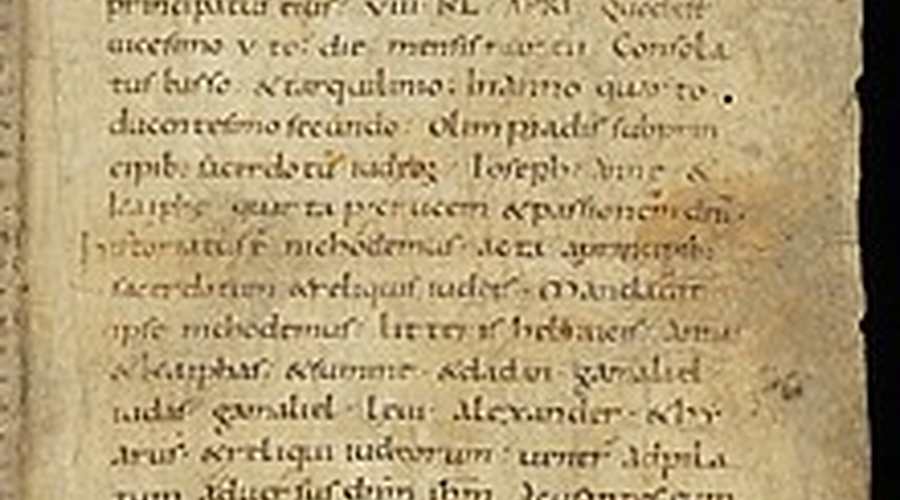 principatus eius. VIII KL APRL. Quod est
uicesimo v to. die mensis martii. Consola
tus basso &tarquilinio. In anno quarto
ducentesimo secundo. Olimpiadis sub prin
cipib. sacerdotū iudęoꝝ. Ioseph. Anne &
kaiphe. quarta p crucem &passionem dñi.
historiatus ē nichodemus. acta a principib.
sacerdotum &reliquis iudeis. Mandauit
ipse nichodemus. litteris hebraicis. Annas
&kaiphas. &summe. &dadan. gamaliel
iudas gamaliel. leui. alexander. &
arus. &reliqui iudeorum. uener̄ ad pila
tum aduersus dñm ihm